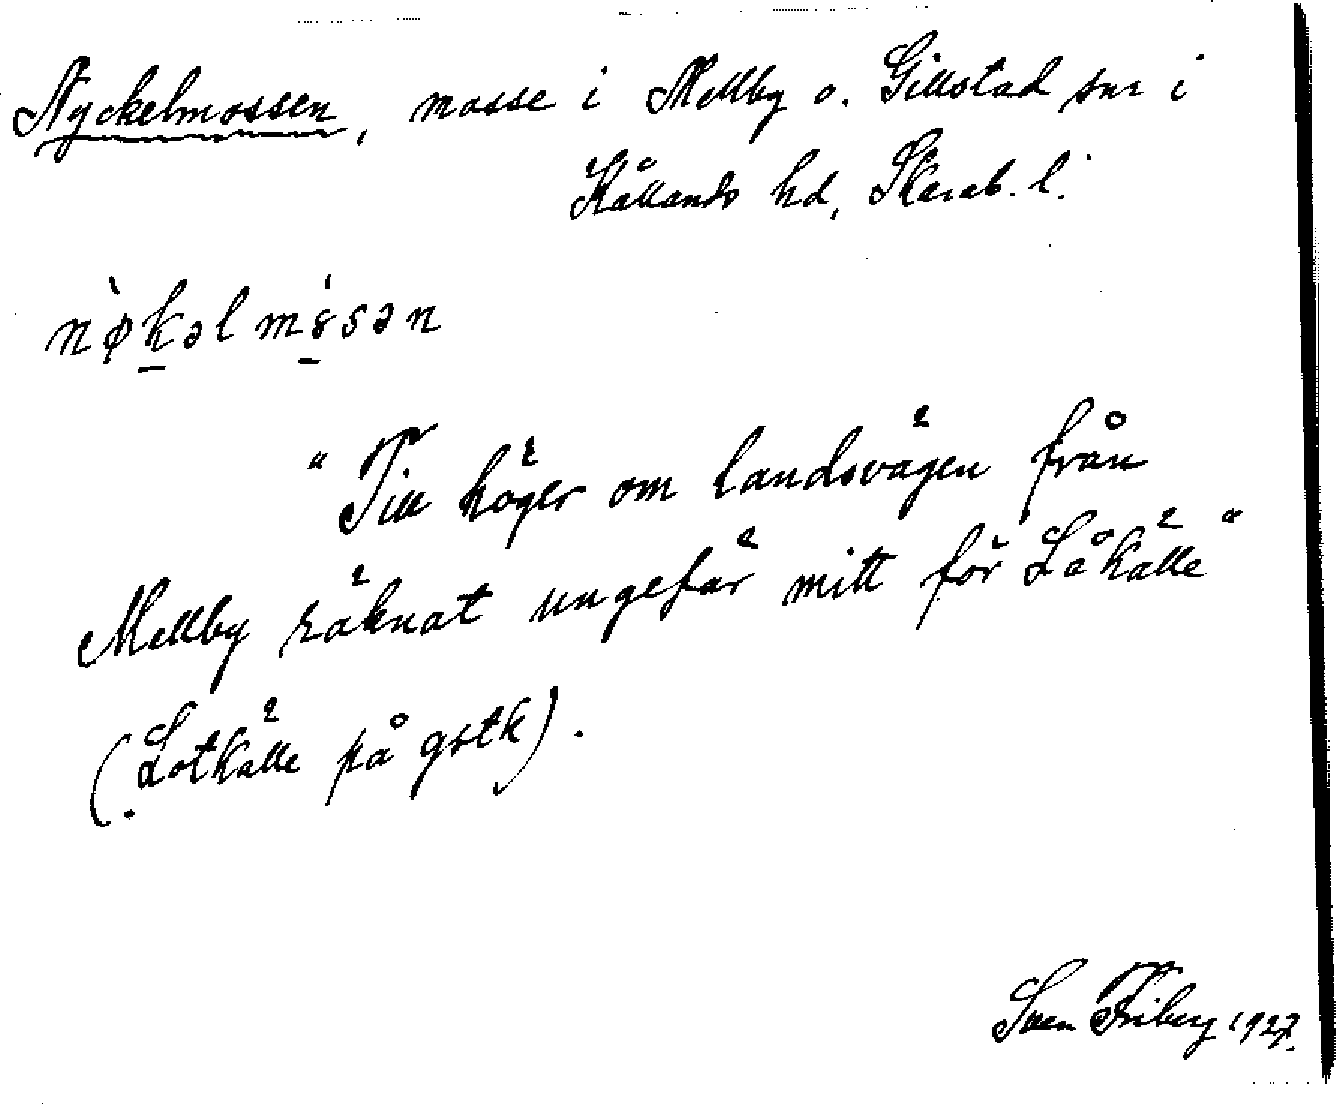 Nyckelmossen, mosse i Mellby o. Gillstad snr i
Kållands hd, Skarab. l.
nø̀kəlmósən
"Till höger om landsvägen från
Mellby räknat ungefär mitt för Låkälle"
(Lotkälle på gstk).
Sven Friberg 1927.